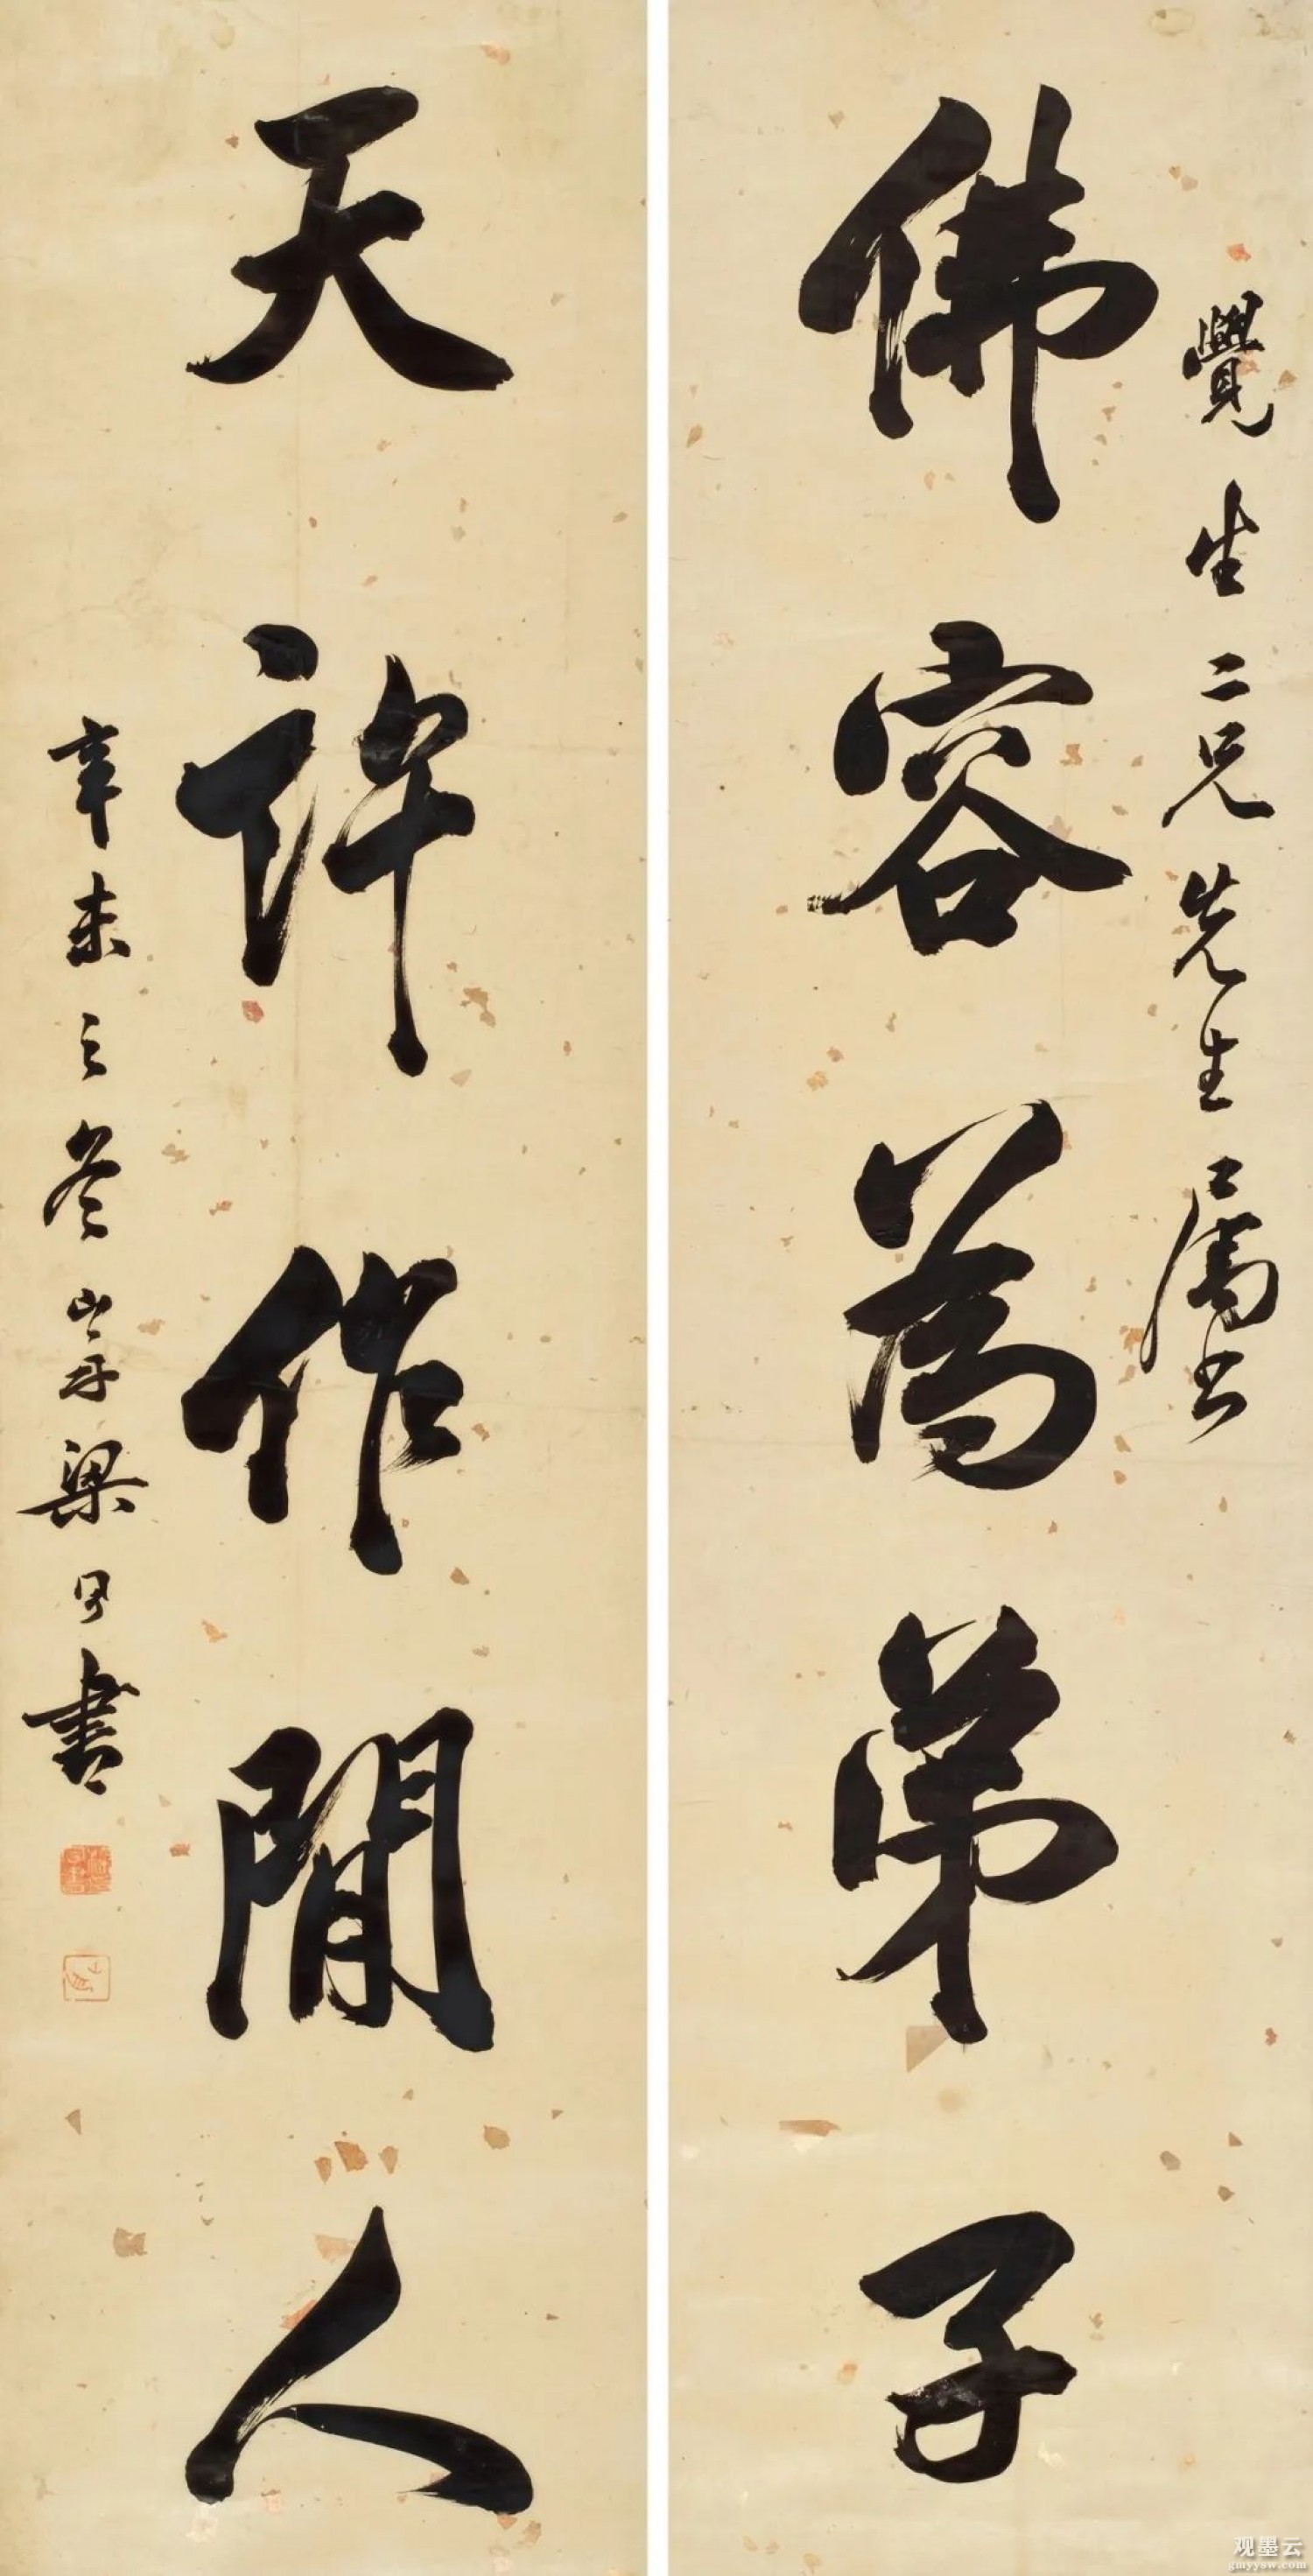 覺生二兄先生屬書
佛容為弟子
天許作閒人
辛未之冬山舟梁同書
观墨云
gmyysw.com